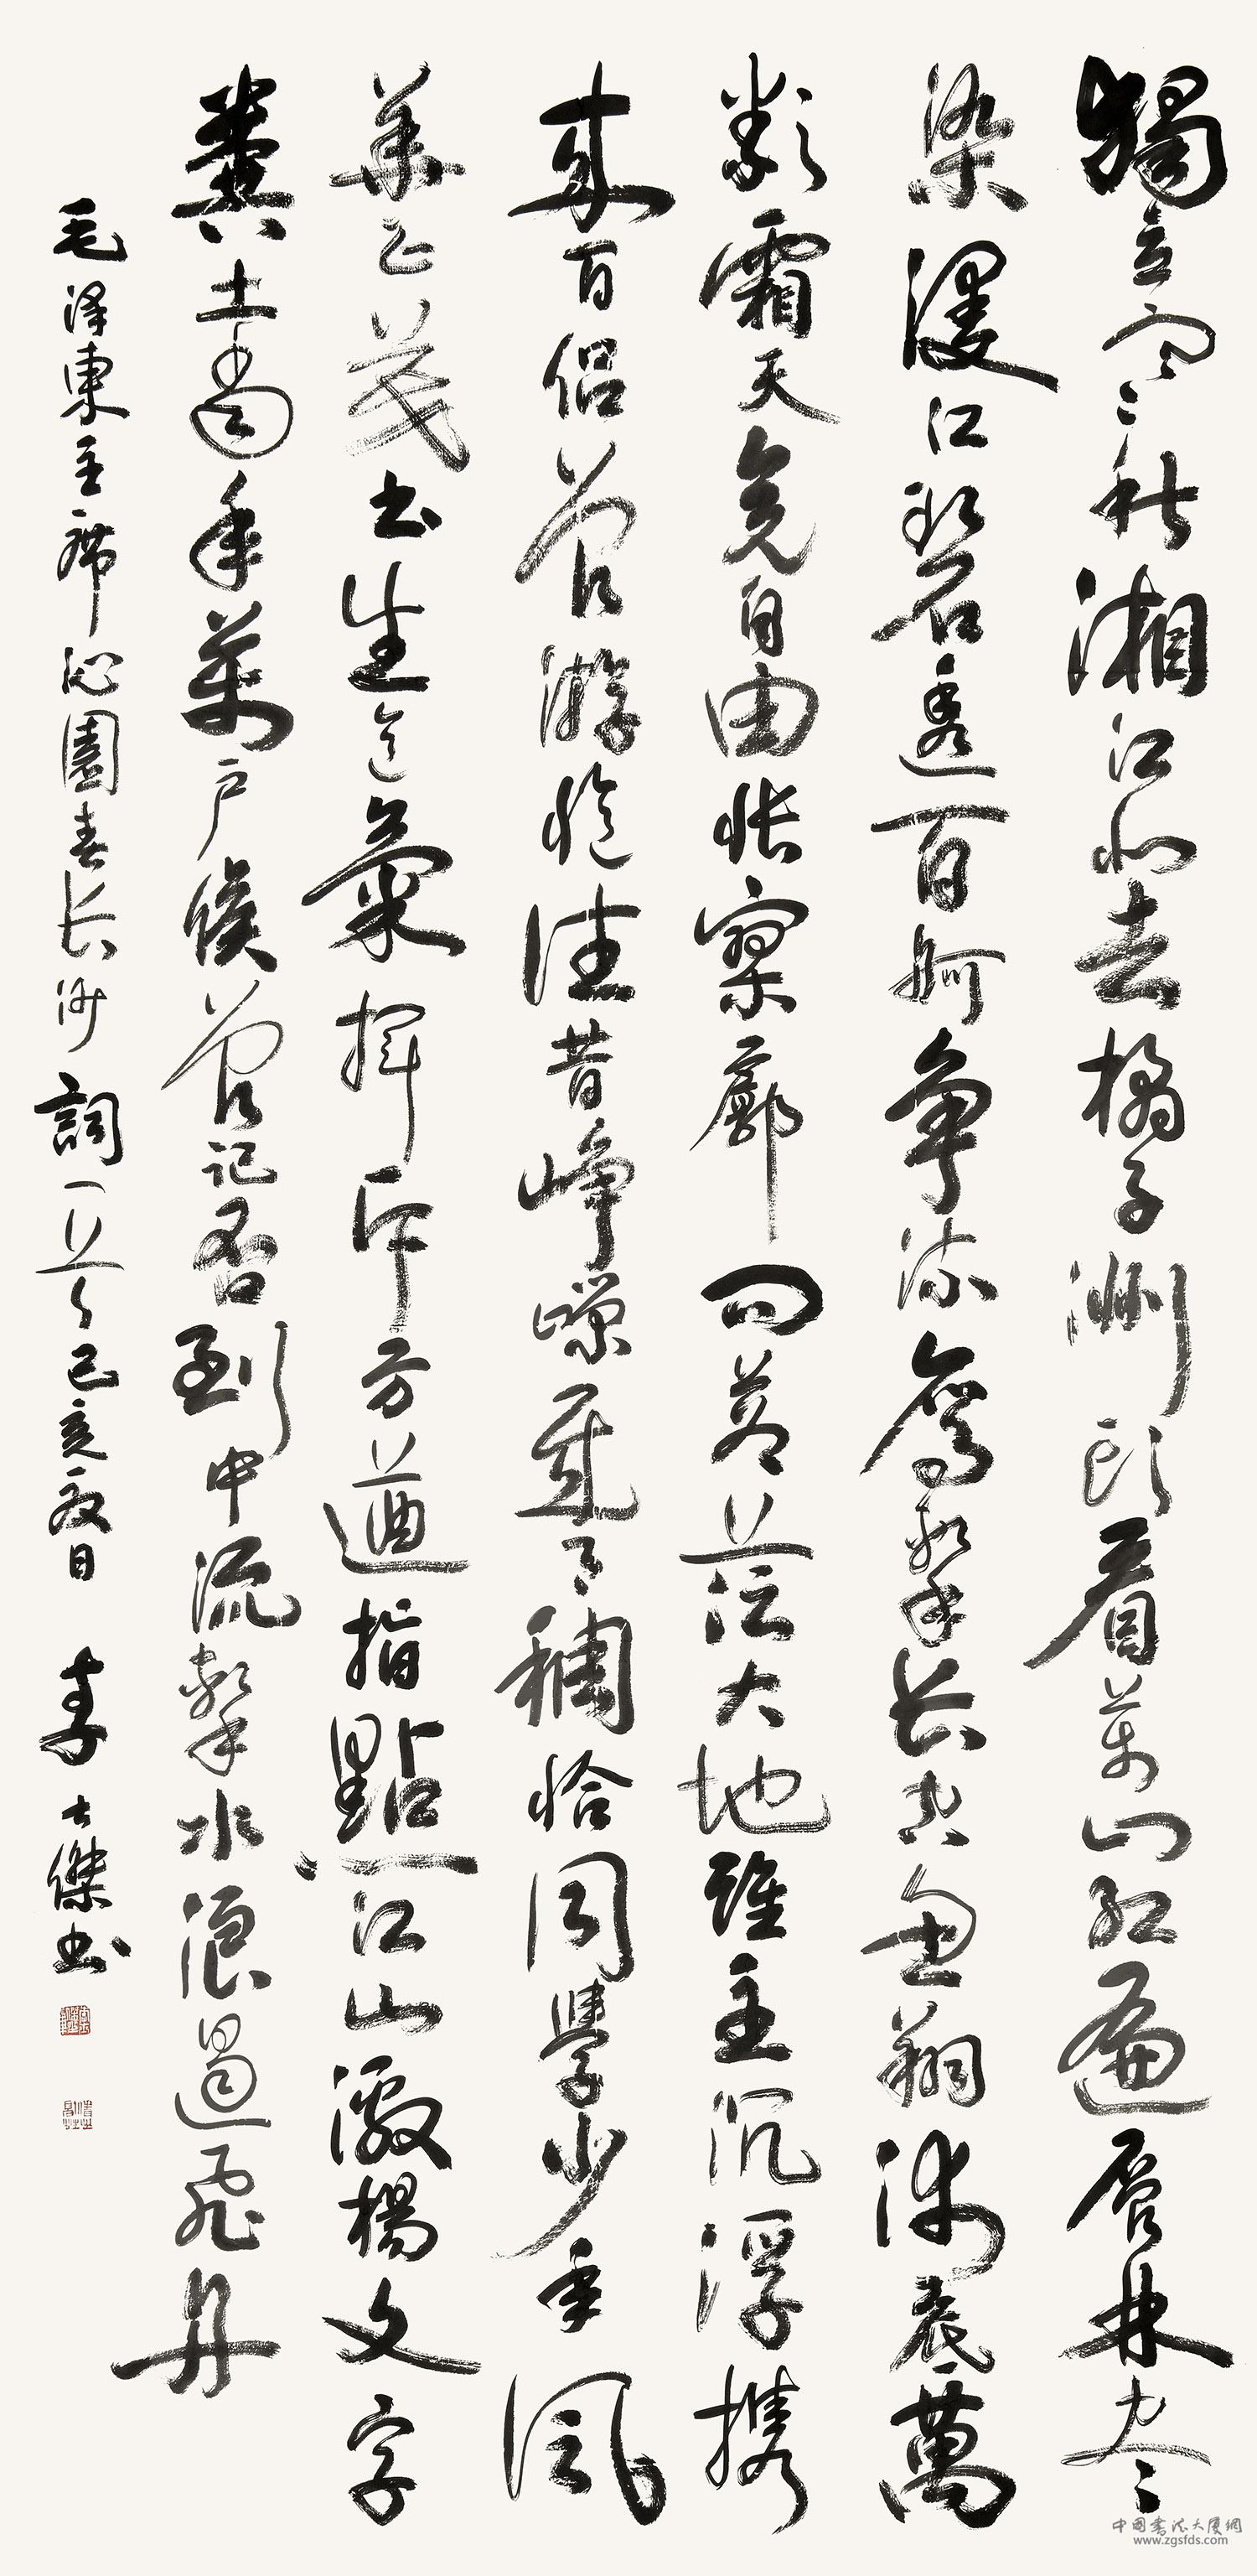 獨立寒秋湘江北去橘子洲頭看萬山紅遍層林盡
染漫江碧透百舸争流鷹擊长空魚翔浅底萬
類霜天竞自由悵寥廓问蒼茫大地誰主沉浮携
来百侣曾游憶往昔峥嵘歲月稠恰同學少年風
華正茂书生意氣揮斥方遒指點江山激楊文字
糞土當年萬户侯曾記否到中流擊水浪遏飛舟
毛泽東主席沁園春长沙詞一首己亥夏日 李士傑书
中國書法大廈網
www.zgsfds.com